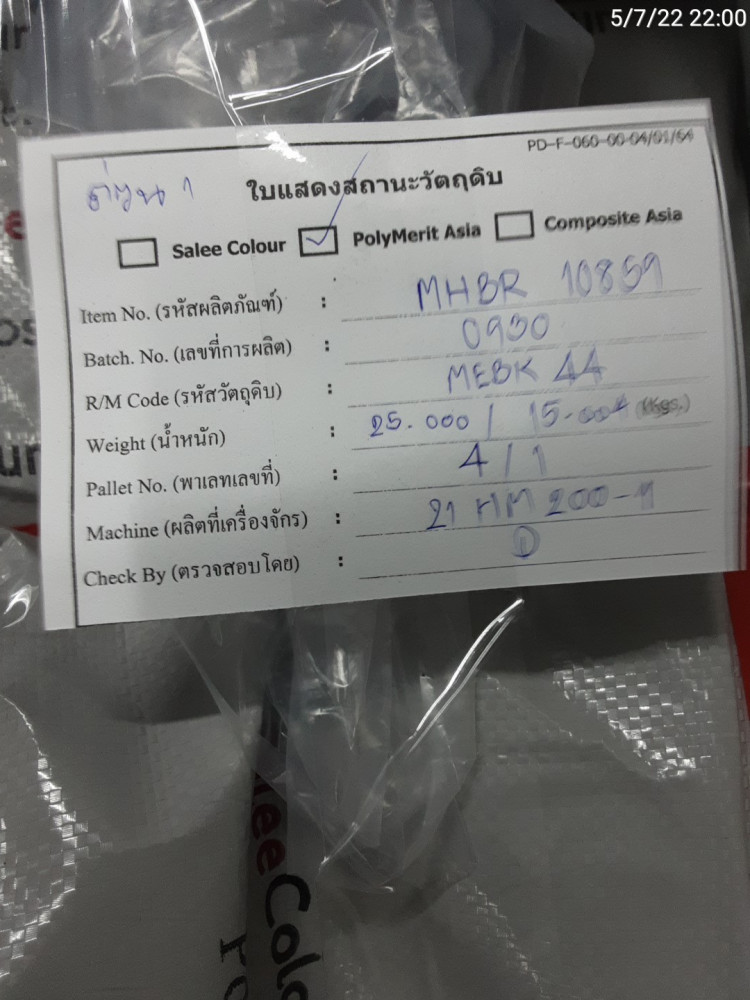 5/7/22 22:00
PD-F-060-00-04/01/64
ด่วน 1
ใบแสดงสถานะวัตถุดิบ
Salee Colour PolyMerit Asia Composite Asia
Item No. (รหัสผลิตภัณฑ์) : MHBR 10859
Batch. No. (เลขที่การผลิต) : 0930
R/M Code (รหัสวัตถุดิบ) : MEBK 44
Weight (น้ำหนัก) : 25.000 / (Kgs.)
Pallet No. (พาเลทเลขที่) : 4/1
Machine (ผลิตที่เครื่องจักร) : 21 200-
Check By (ตรวจสอบโดย) :
eeColo